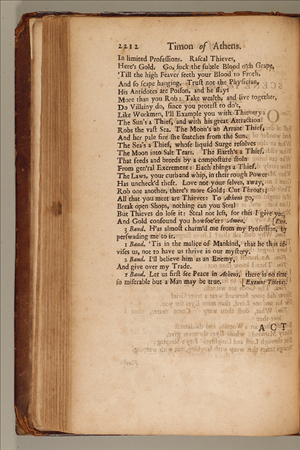 2212 Timon of Athens.
In limited Professions. Rascal Thieves,
Here's Gold. Go, suck the subtle Blood o'th' Grape,
'Till the high Feaver seeth your Blood to Froth,
And so scape hanging. Trust not the Physician,
His Antidotes are Poison, and he slays
More than you Rob: Take wealth, and live together,
Do Villainy do, since you protest to do't,
Like Workmen, I'll Example you with Thievery:
The Sun's a Thief, and with his great Attraction
Robs the vast Sea. The Moon's an Arrant Thief,
And her pale fire she snatches from the Sun.
The Sea's a Thief, whose liquid Surge resolves
The Moon into Salt Tears. The Earth's a Thief,
That feeds and breeds by a composture stoln
From gen'ral Excrement: Each thing's a Thief.
The Laws, your curb and whip, in their rough Power
Has uncheck'd theft. Love not your selves, away,
Rob one another, there's more Gold; Cut Throats;
All that you meet are Thieves: To Athens go,
Break open Shops, nothing can you steal
But Thieves do lose it: Steal not less, for this I give you,
And Gold confound you howsoe'er: Amen. [Exit.
3 Band. H'as almost charm'd me from my Profession, by
perswading me to it.
1 Band. 'Tis in the malice of Mankind, that he thus ad-
vises us, not to have us thrive in our mystery.
2 Band. I'll believe him as an Enemy,
And give over my Trade.
1 Band. Let us first see Peace in Athens, there is no time
so miserable but a Man may be true. [Exeunt Thieves.
ACT